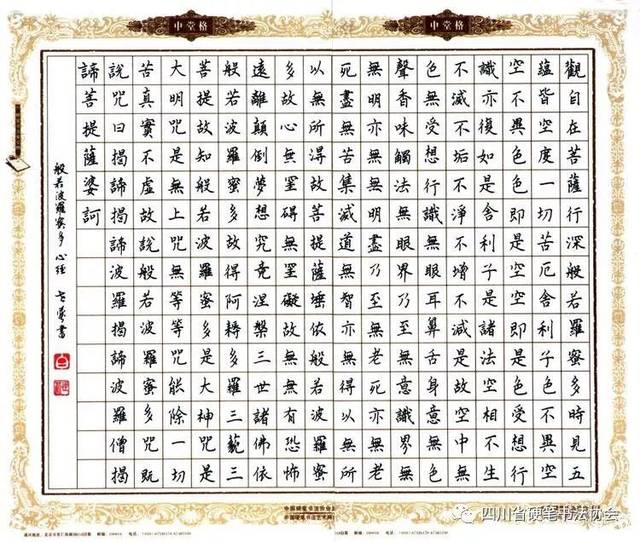 中堂格
中堂格
觀自在菩薩行深般若羅蜜多時見五
蘊皆空度一切苦厄舍利子色不異空
空不異色色即是空空即是色受想行
識亦復如是舍利子是諸法空相不生
不滅不垢不淨不增不減是故空中無
色無受想行識無眼耳鼻舌身意無色
聲香味觸法無眼界乃至無意識界無
無明亦無無明盡乃至無老死亦無老
死盡無苦集滅道無智亦無得以無所
以無所得故菩提薩埵依般若波羅蜜
多故心無罣礙無罣礙故無有恐怖
遠離顛倒夢想究竟涅槃三世諸佛依
般若波羅蜜多故得阿耨多羅三藐三
菩提故知般若波羅蜜多是大神咒是
大明咒是無上咒無等等咒能除一切
苦真實不虛故說般若波羅蜜多咒既
說咒曰揭諦揭諦波羅揭諦波羅僧揭
諦菩提薩婆訶
般若波羅蜜多心經 書
四川省硬笔书法协会